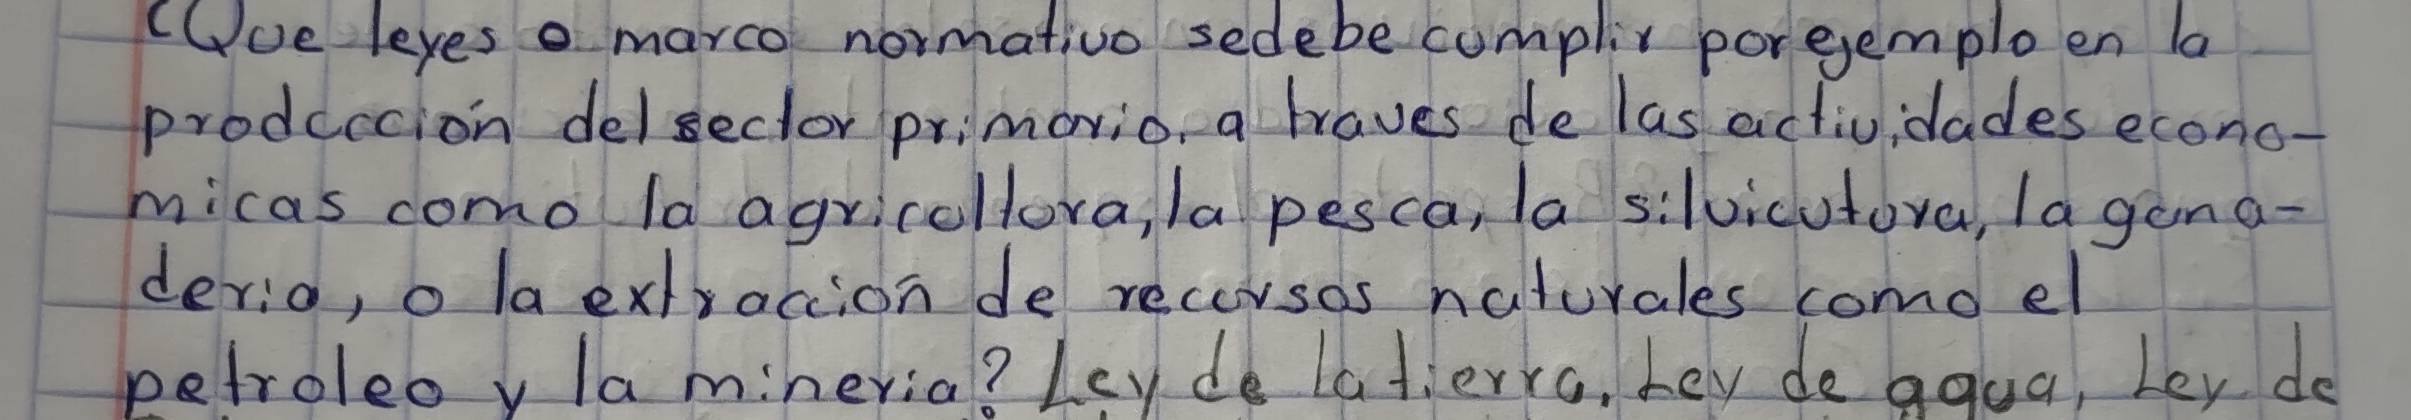 ¿Que leyes o marco normativo sedebe cumplir por ejemplo en la
prodcccion del sector primario. a traves de las actividades econo-
micas como la agricultura, la pesca, la silvicutura, la gana-
deria, o la extracción de recursos naturales como el
petroleo y la mineria? Ley de la tierra. Ley de agua, Ley de